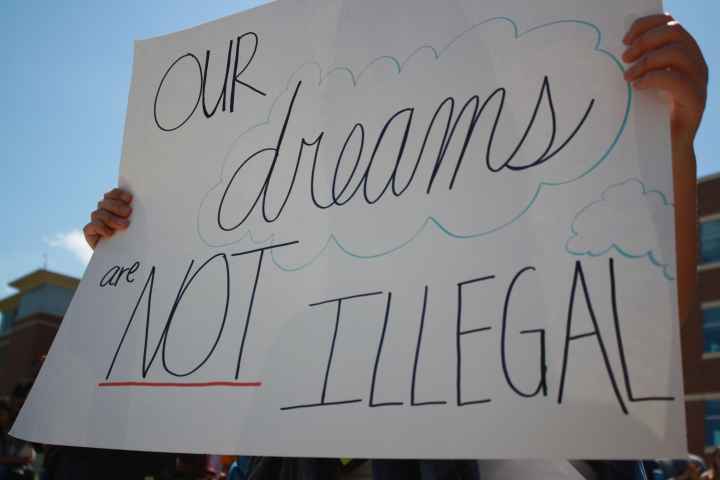 OUR
dreams
are NOT
ILLEGAL